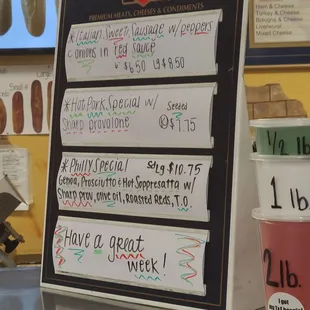 PREMIUM MEATS, CHEESES & CONDIMENTS
*Italian Sweet Sausage w/ peppers
& onions in red sauce
* $6.50 Lg $8.50
*Hot Pork Special w/
Sharp provolone
Seeded
@ $7.75
*Philly Special Sdlg $10.75
Genoa, Prosciutto & Hot Soppresatta w/
Sharp prov, olive oil, Roasted Reds, T.O.
Have a great
week!
Ham & Cheese
Turkey & Cheese
Bologna & Cheese
Liverwurst
Mixed Cheese
Small
Large
1/2 lb
1 lb
2 lb.
I got